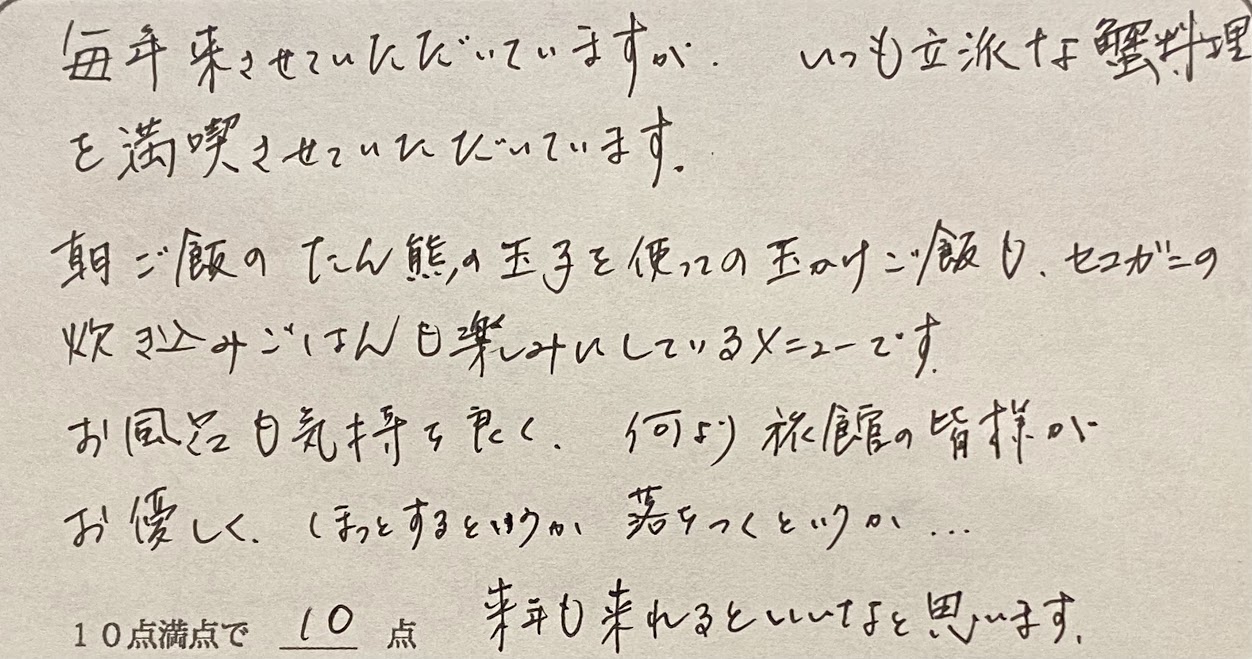 毎年来させていただいていますが、 いつも立派な蟹料理
を満喫させていただいています。
朝ご飯の たん熊の玉子を使っての玉かけご飯も、セコガニの
炊き込みごはんも楽しみにしているメニューです。
お風呂も気持ち良く、 何より旅館の皆様が
お優しく、ほっとするというか 落ちつくというか…
10点満点で 10 点 来年も来れるといいなと思います。